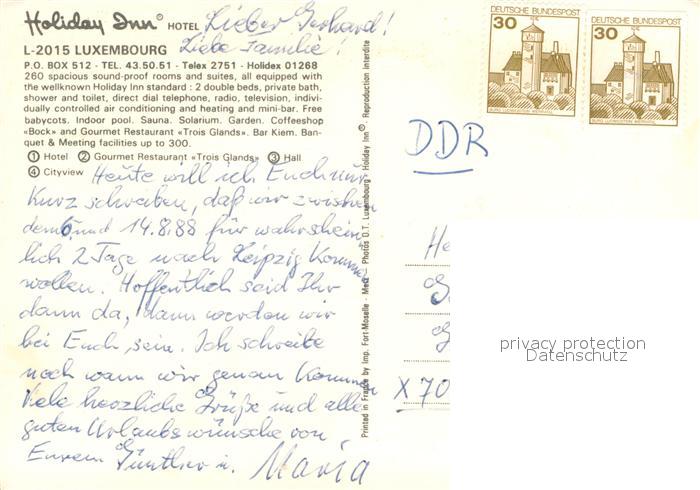 Holiday Inn® HOTEL
L-2015 LUXEMBOURG
P.O. BOX 512 - TEL. 43.50.51 - Telex 2751 - Holidex 01268
260 spacious sound-proof rooms and suites, all equipped with
the wellknown Holiday Inn standard : 2 double beds, private bath,
shower and toilet, direct dial telephone, radio, television, indivi-
dually controlled air conditioning and heating and mini-bar. Free
babycots. Indoor pool. Sauna. Solarium. Garden. Coffeeshop
«Bock» and Gourmet Restaurant «Trois Glands». Bar Kiem. Ban-
quet & Meeting facilities up to 300.
① Hotel ② Gourmet Restaurant «Trois Glands» ③ Hall
④ Cityview
Lieber Gerhard!
Liebe Familie!
Heute will ich Euch nur
kurz schreiben, daß wir zwischen
dem 6. und 14.8.88 für wahrschein
lich 2 Tage nach Leipzig kommen
wollen. Hoffentlich seid Ihr
dann da, dann werden wir
bei Euch sein. Ich schreibe
noch wann wir genau kommen
Viele herzliche Grüße und alle
guten Urlaubswünsche von
Eurem Günther u. Maria
Printed in France by Imp. Fort-Moselle - Photos O.T. Luxembourg - Holiday Inn® - Reproduction interdite
DEUTSCHE BUNDESPOST
30
DEUTSCHE BUNDESPOST
30
DDR
He
X 70
privacy protection
Datenschutz